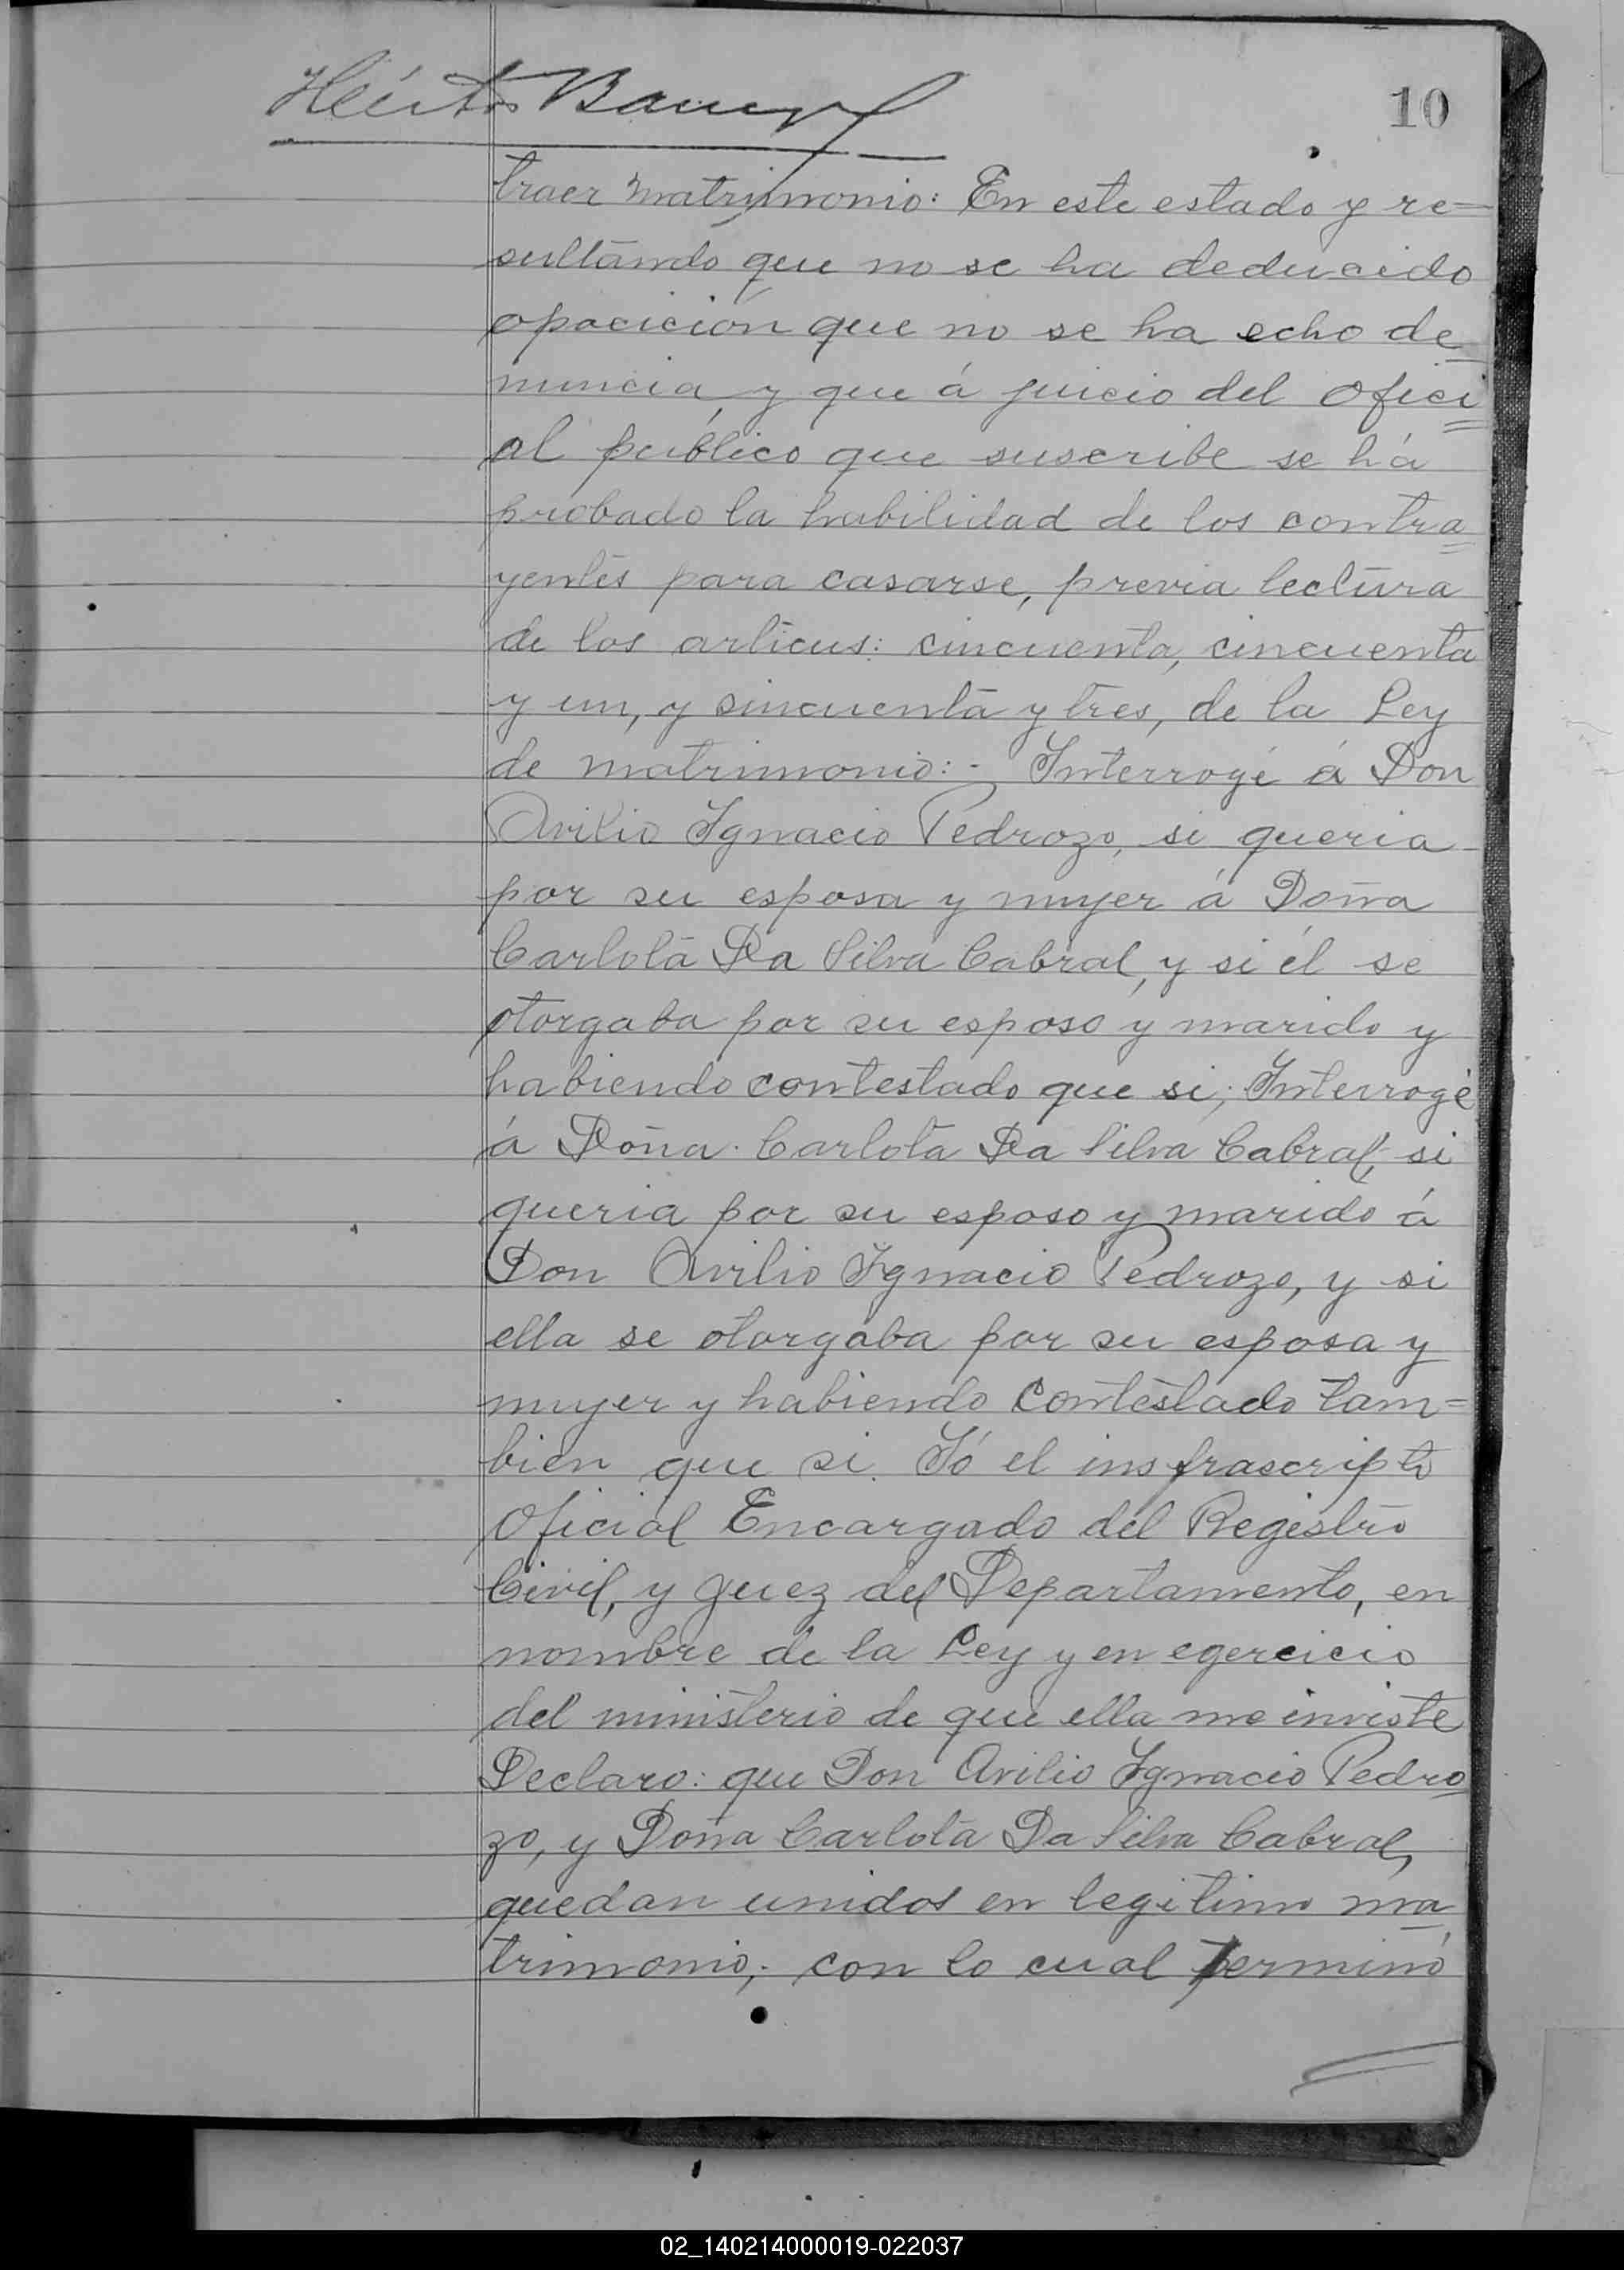 10
traer matrimonio: En este estado y re=
sultando que no se ha deducido
opocición que no se ha echo de
nuncia, y que á juicio del ofici
al público que suscribe se há
probado la habilidad de los contra
yentes para casarse, previa lectura
de los articus: cincuenta, cincuenta
y un, y sincuenta y tres, de la Ley
de matrimonio:- Interrogé á Don
Avilio Ignacio Pedrozo, si queria
por su esposa y mujer á Doña
Carlota Da Silva Cabral, y si él se
otorgaba por su esposo y marido y
habiendo contestado que si; Interrogé
á Doña Carlota Da Silva Cabral, si
queria por su esposo y marido á
Don Avilio Ignacio Pedrozo, y si
ella se otorgaba por su esposa y
mujer y habiendo contestado tam=
bien que si. Yó el insfrascripto
Oficial Encargado del Registro
Civil, y Juez del Departamento, en
nombre de la Ley y en egercicio
del ministerio de que ella me inviste
Declaro: que Don Avilio Ignacio Pedro
zo, y Doña Carlota Da Silva Cabral,
quedan unidos en legitimo ma
trimonio; con lo cual terminó
02_140214000019-022037